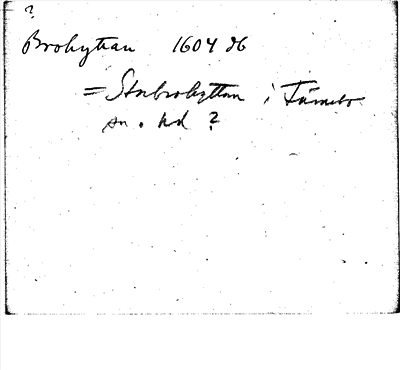 ?
Brohyttan 1604 db
= Storbrohyttan i Färnebo
sn. hd ?